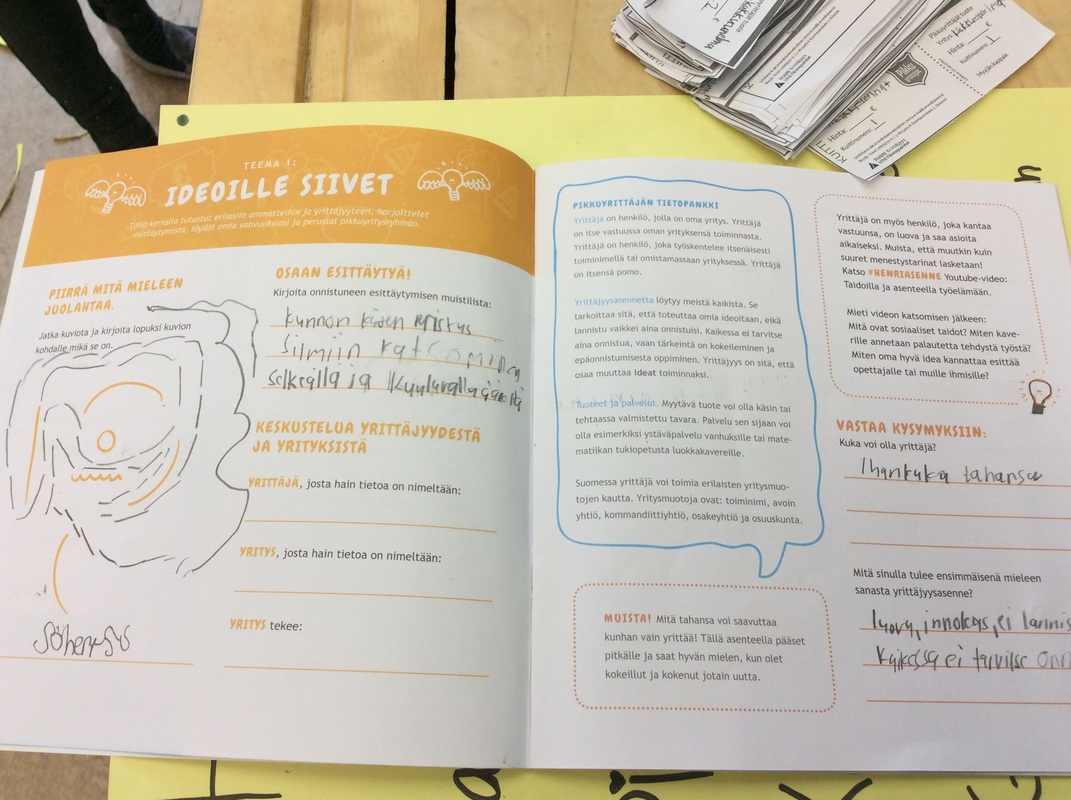 TEEMA 1:
IDEOILLE SIIVET
Tällä kerralla tutustut erilaisiin ammatteihin ja yrittäjyyteen, harjoittelet
esittäytymistä, löydät omia vahvuuksiasi ja perustat pikkuyritysryhmän.
PIIRRÄ MITÄ MIELEEN
JUOLAHTAA.
Jatka kuviota ja kirjoita lopuksi kuvion
kohdalle mikä se on.
Söherysys
OSAAN ESITTÄYTYÄ!
Kirjoita onnistuneen esittäytymisen muistilista:
kunnon käden
Silmiin katsominen
selkeällä ja kuuluvalla
KESKUSTELUA YRITTÄJYYDESTÄ
JA YRITYKSISTÄ
YRITTÄJÄ, josta hain tietoa on nimeltään:
YRITYS, josta hain tietoa on nimeltään:
YRITYS tekee:
PIKKUYRITTÄJÄN TIETOPANKKI
Yrittäjä on henkilö, jolla on oma yritys. Yrittäjä
on itse vastuussa oman yrityksensä toiminnasta.
Yrittäjä on henkilö, joka työskentelee itsenäisesti
toiminimellä tai omistamassaan yrityksessä. Yrittäjä
on itsensä pomo.
Yrittäjyysasennetta löytyy meistä kaikista. Se
tarkoittaa sitä, että toteuttaa omia ideoitaan, eikä
lannistu vaikkei aina onnistuisi. Kaikessa ei tarvitse
aina onnistua, vaan tärkeintä on kokeileminen ja
epäonnistumisesta oppiminen. Yrittäjyys on sitä, että
osaa muuttaa ideat toiminnaksi.
Tuoteet ja palvelut. Myytävä tuote voi olla käsin tai
tehtaassa valmistettu tavara. Palvelu sen sijaan voi
olla esimerkiksi ystäväpalvelu vanhuksille tai mate-
matiikan tukiopetusta luokkakavereille.
Suomessa yrittäjä voi toimia erilaisten yritysmuo-
tojen kautta. Yritysmuotoja ovat: toiminimi, avoin
yhtiö, kommandiittiyhtiö, osakeyhtiö ja osuuskunta.
MUISTA! Mitä tahansa voi saavuttaa
kunhan vain yrittää! Tällä asenteella pääset
pitkälle ja saat hyvän mielen, kun olet
kokeillut ja kokenut jotain uutta.
Yrittäjä on myös henkilö, joka kantaa
vastuunsa, on luova ja saa asioita
aikaiseksi. Muista, että muutkin kuin
suuret menestystarinat lasketaan!
Katso #HENRIASENNE Youtube-video:
Taidoilla ja asenteella työelämään.
Mieti videon katsomisen jälkeen:
Mitä ovat sosiaaliset taidot? Miten kave-
rille annetaan palautetta tehdystä työstä?
Miten oma hyvä idea kannattaa esittää
opettajalle tai muille ihmisille?
VASTAA KYSYMYKSIIN:
Kuka voi olla yrittäjä?
Ihankuka tahansa
Mitä sinulla tulee ensimmäisenä mieleen
sanasta yrittäjyysasenne?
luova, innokas, ei lannis
Kaikessa ei tarvitse onn
Pikkuyrittäjän tuote
Yritys:
Hinta: 1 €
Kuittinumero: 1
Myyjän kappale
KUITTI
Hinta: €
Kuittinumero: 1